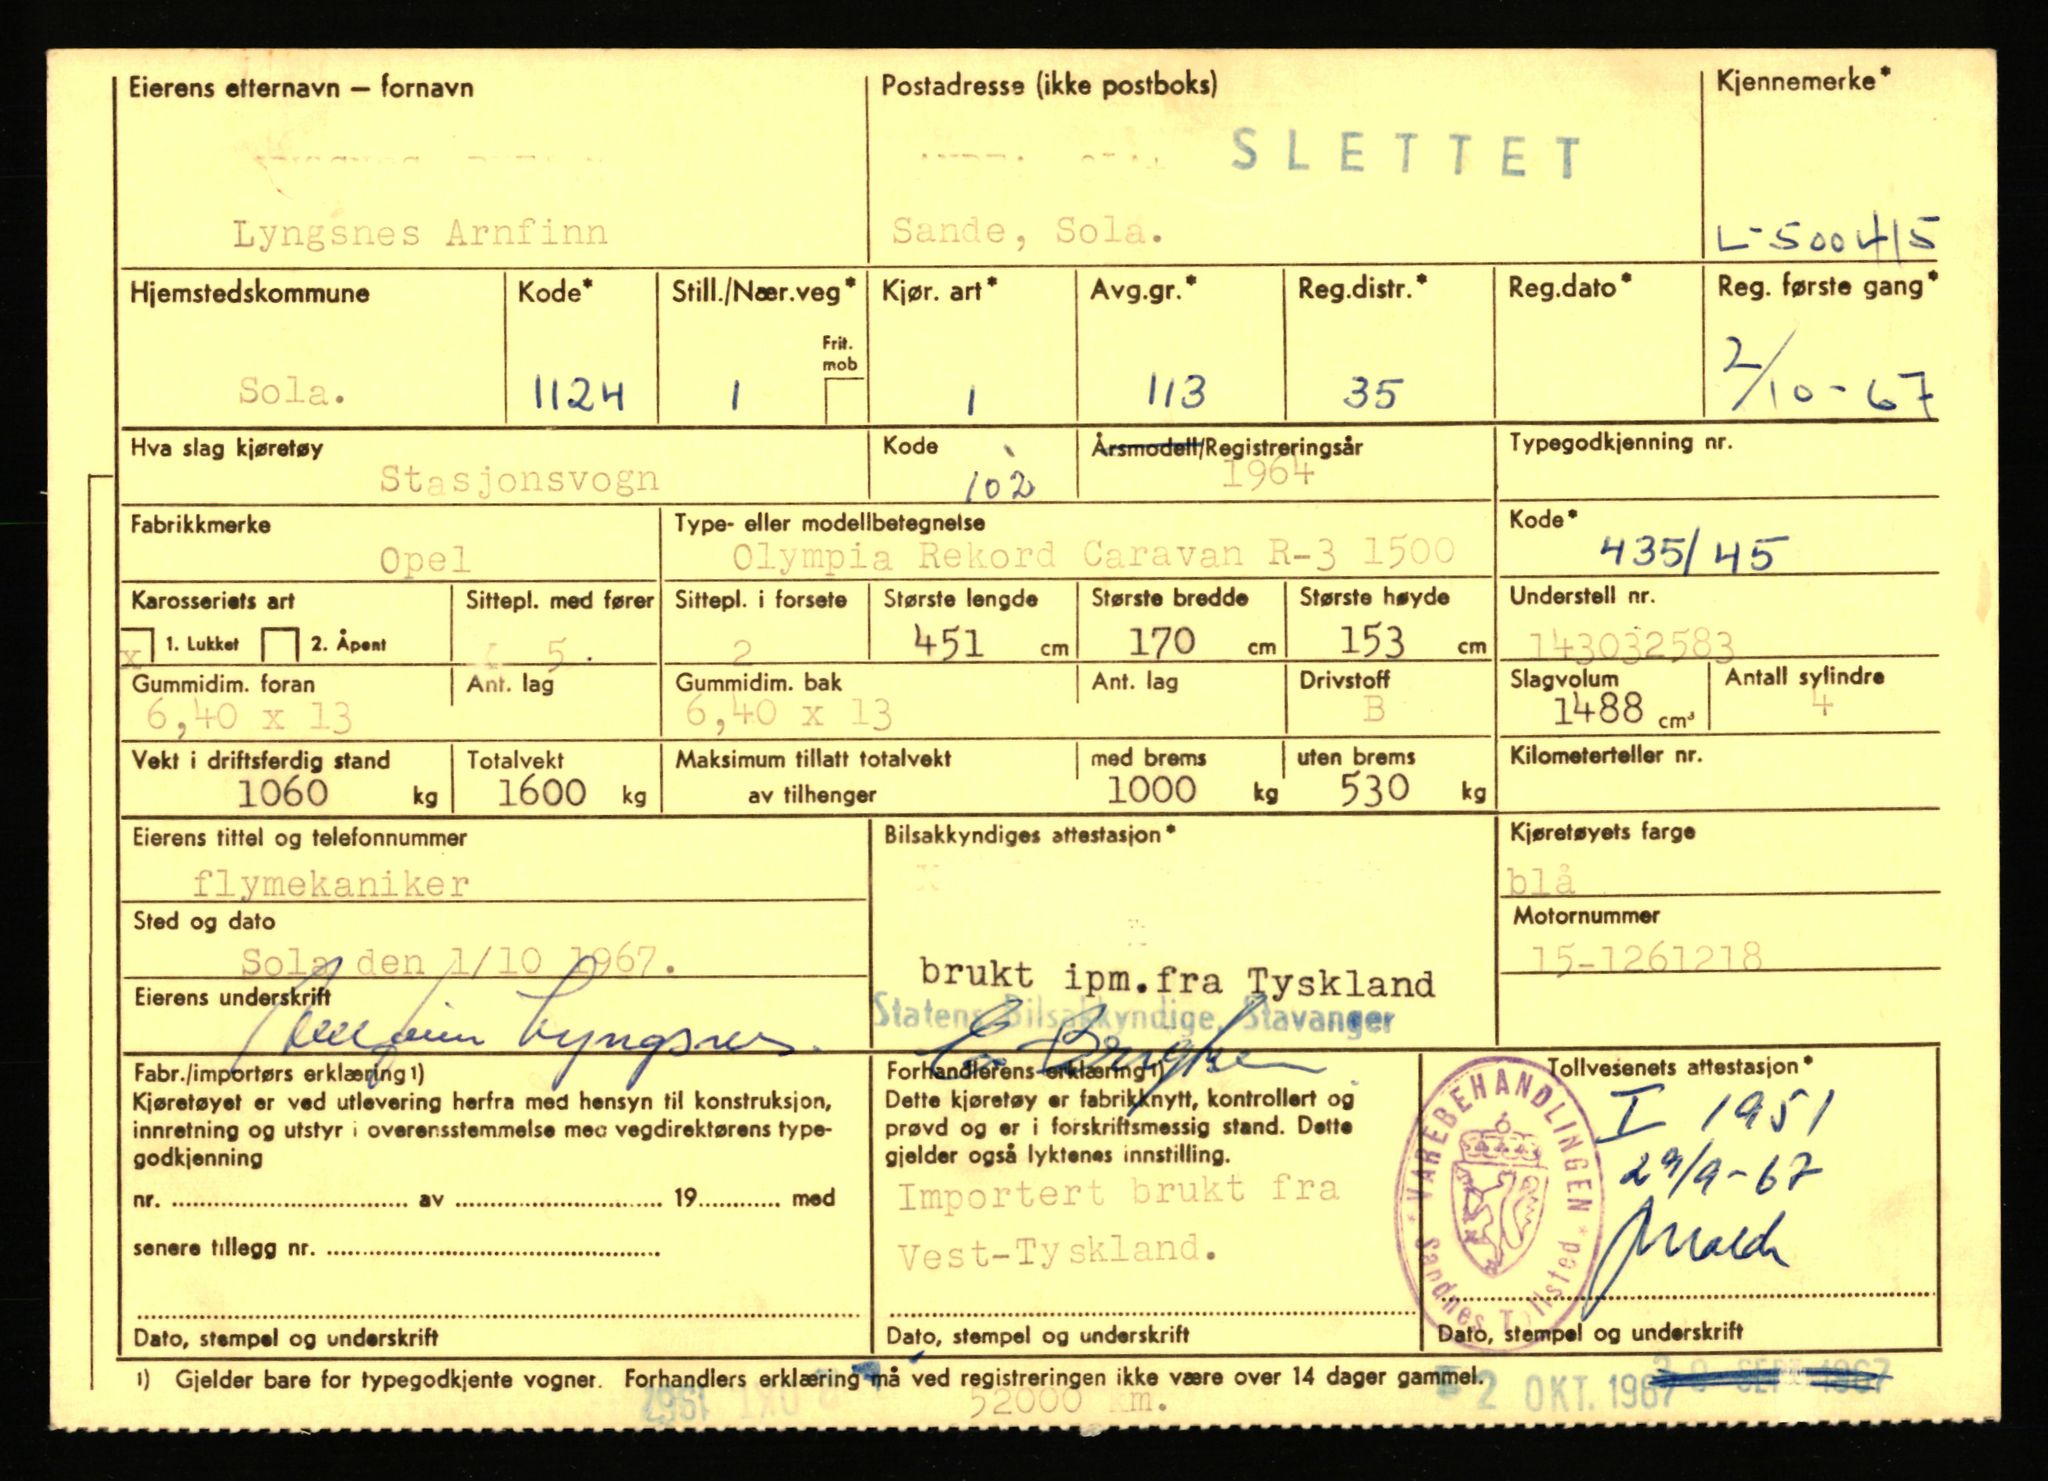 Eierens etternavn — fornavn
Postadresse (ikke postboks)
Kjennemerke*
SLETTET
Lyngsnes Arnfinn
Sande, Sola.
L-500415
Hjemstedskommune
Kode*
Still./Nær.veg*
Kjør. art*
Avg.gr.*
Reg.distr.*
Reg.dato*
Reg. første gang*
Frit. mob
Sola.
1124
1
1
113
35
2/10-67
Hva slag kjøretøy
Kode
Årsmodell/Registreringsår
Typegodkjenning nr.
Stasjonsvogn
102
1964
Fabrikkmerke
Type- eller modellbetegnelse
Kode*
Opel
Olympia Rekord Caravan R-3 1500
435/45
Karosseriets art
Sittepl. med fører
Sittepl. i forsete
Største lengde
Største bredde
Største høyde
Understell nr.
x 1. Lukket 2. Åpent
5.
2
451 cm
170 cm
153 cm
143032583
Gummidim. foran
Ant. lag
Gummidim. bak
Ant. lag
Drivstoff
Slagvolum
Antall sylindre
6,40 x 13
6,40 x 13
B
1488 cm³
4
Vekt i driftsferdig stand
Totalvekt
Maksimum tillatt totalvekt
med brems
uten brems
Kilometerteller nr.
1060 kg
1600 kg
av tilhenger
1000 kg
530 kg
Eierens tittel og telefonnummer
Bilsakkyndiges attestasjon*
Kjøretøyets farge
flymekaniker
blå
Sted og dato
Motornummer
Sola den 1/10 1967.
brukt ipm.fra Tyskland
15-1261218
Eierens underskrift
Arnfinn Lyngsnes.
Statens Bilsakkyndige, Stavanger
Fabr./importørs erklæring 1)
Kjøretøyet er ved utlevering herfra med hensyn til konstruksjon,
innretning og utstyr i overensstemmelse med vegdirektørens type-
godkjenning
nr. av 19 med
senere tillegg nr.
Dato, stempel og underskrift
Forhandlerens erklæring 1)
Dette kjøretøy er fabrikknytt, kontrollert og
prøvd og er i forskriftsmessig stand. Dette
gjelder også lyktenes innstilling.
Importert brukt fra
Vest-Tyskland.
Dato, stempel og underskrift
Tollvesenets attestasjon*
I 1951
29/9-67
* VAREBEHANDLINGEN *
Sandnes Tollsted
Dato, stempel og underskrift
1) Gjelder bare for typegodkjente vogner. Forhandlers erklæring må ved registreringen ikke være over 14 dager gammel.
2 OKT. 1967
SEPT 1967
OKT 1967
52000 km.